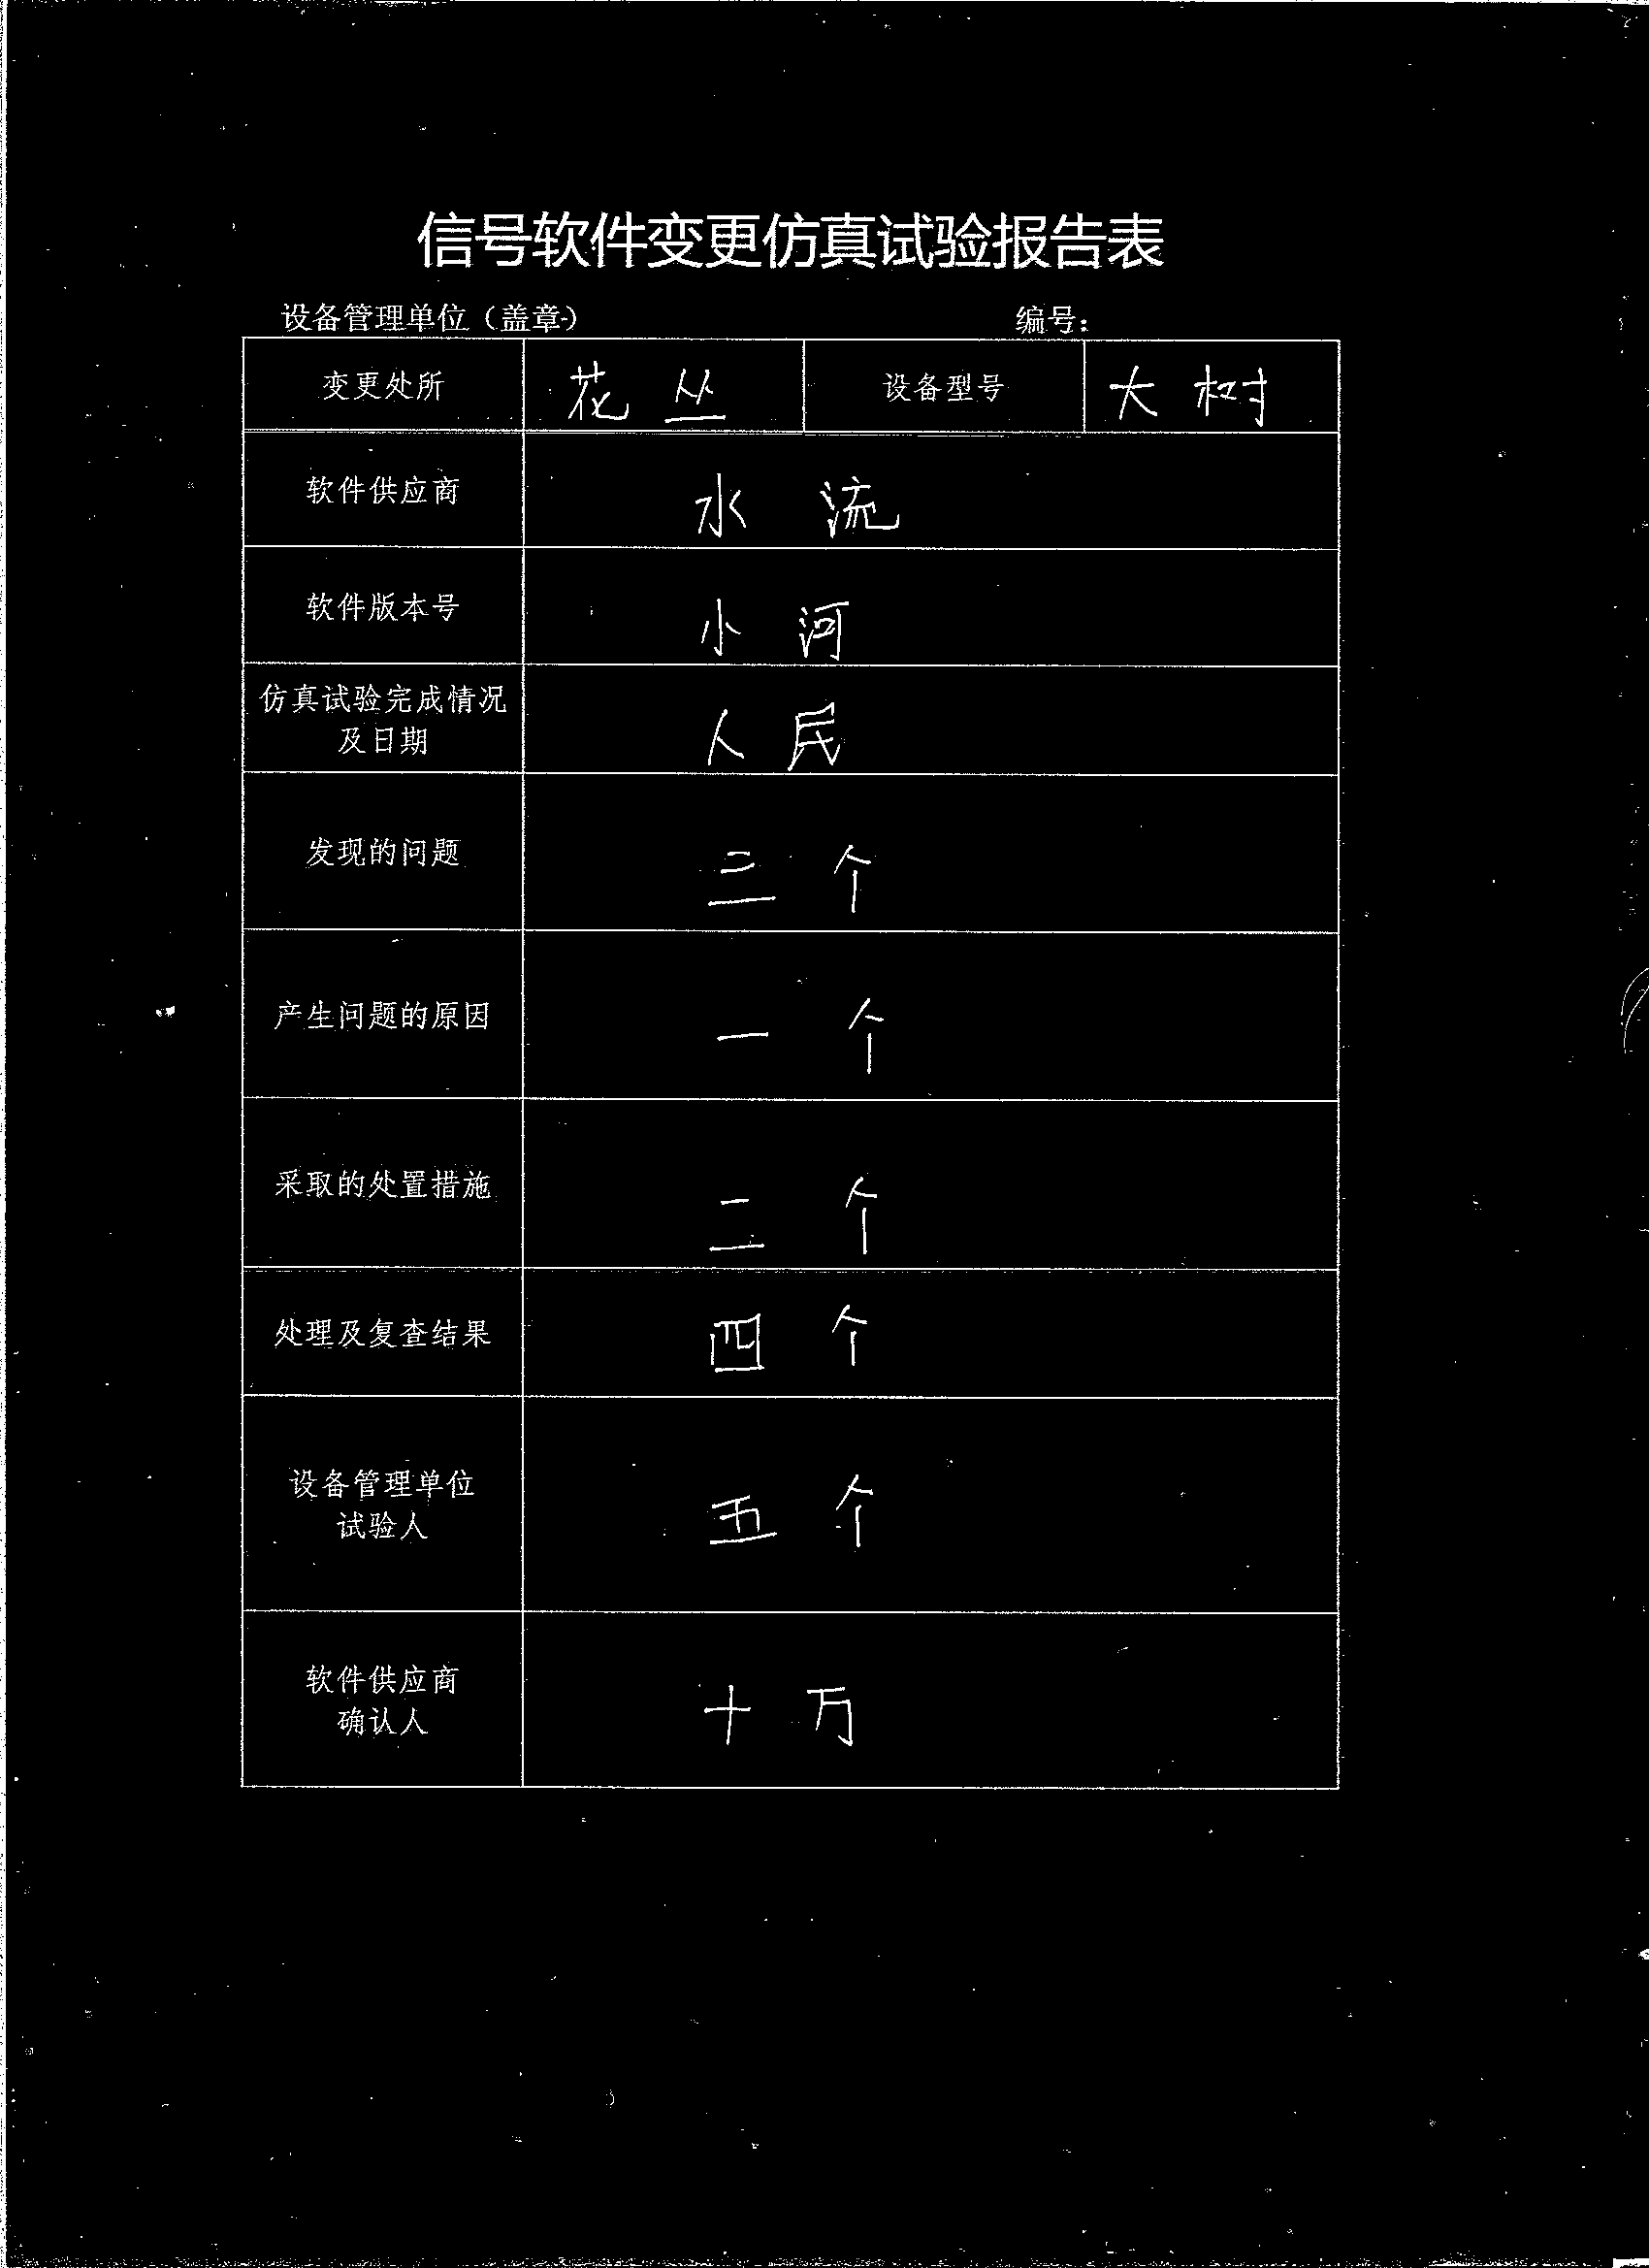 信号软件变更仿真试验报告表
设备管理单位（盖章） 编号：
变更处所 花丛 设备型号 大树
软件供应商 水流
软件版本号 小河
仿真试验完成情况
及日期 人民
发现的问题 三个
产生问题的原因 一个
采取的处置措施 二个
处理及复查结果 四个
设备管理单位
试验人 五个
软件供应商
确认人 十万